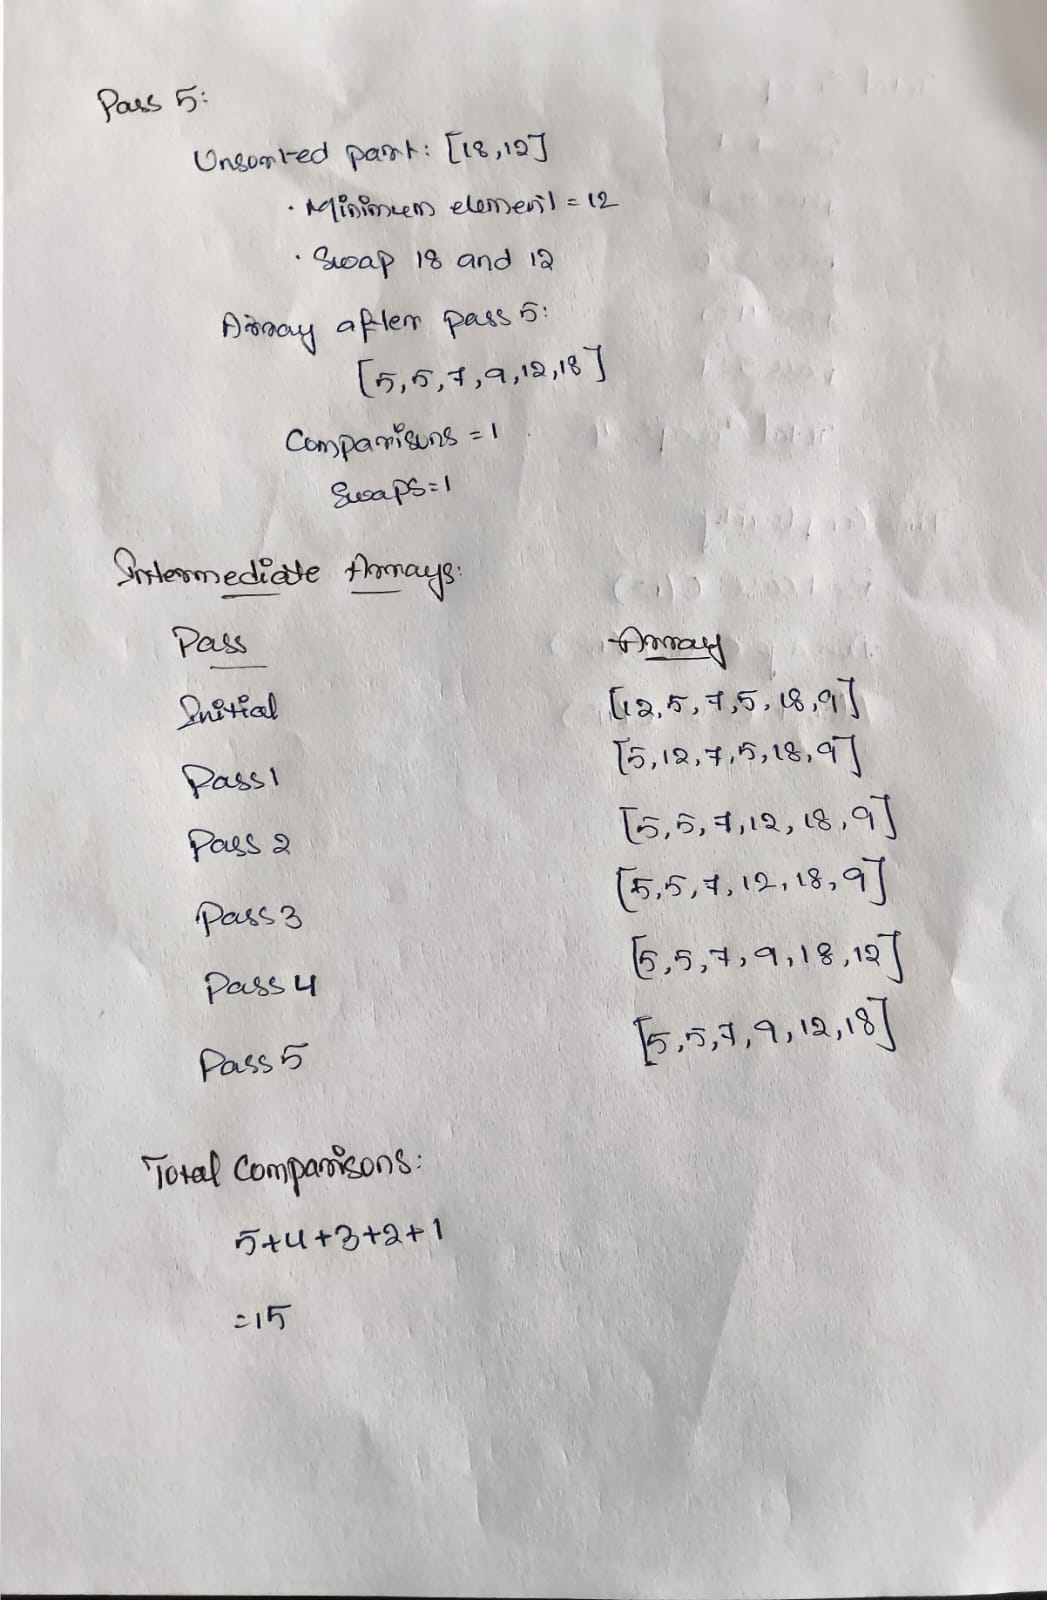 Pass 5:
Unsorted part: [18,12]
· Minimum element = 12
· Swap 18 and 12
Array after pass 5:
[5,5,7,9,12,18]
Comparisons = 1
Swaps=1
Intermediate Arrays:
Pass Array
Initial [12,5,7,5,18,9]
Pass 1 [5,12,7,5,18,9]
Pass 2 [5,5,7,12,18,9]
Pass 3 [5,5,7,12,18,9]
Pass 4 [5,5,7,9,18,12]
Pass 5 [5,5,7,9,12,18]
Total Comparisons:
5+4+3+2+1
=15